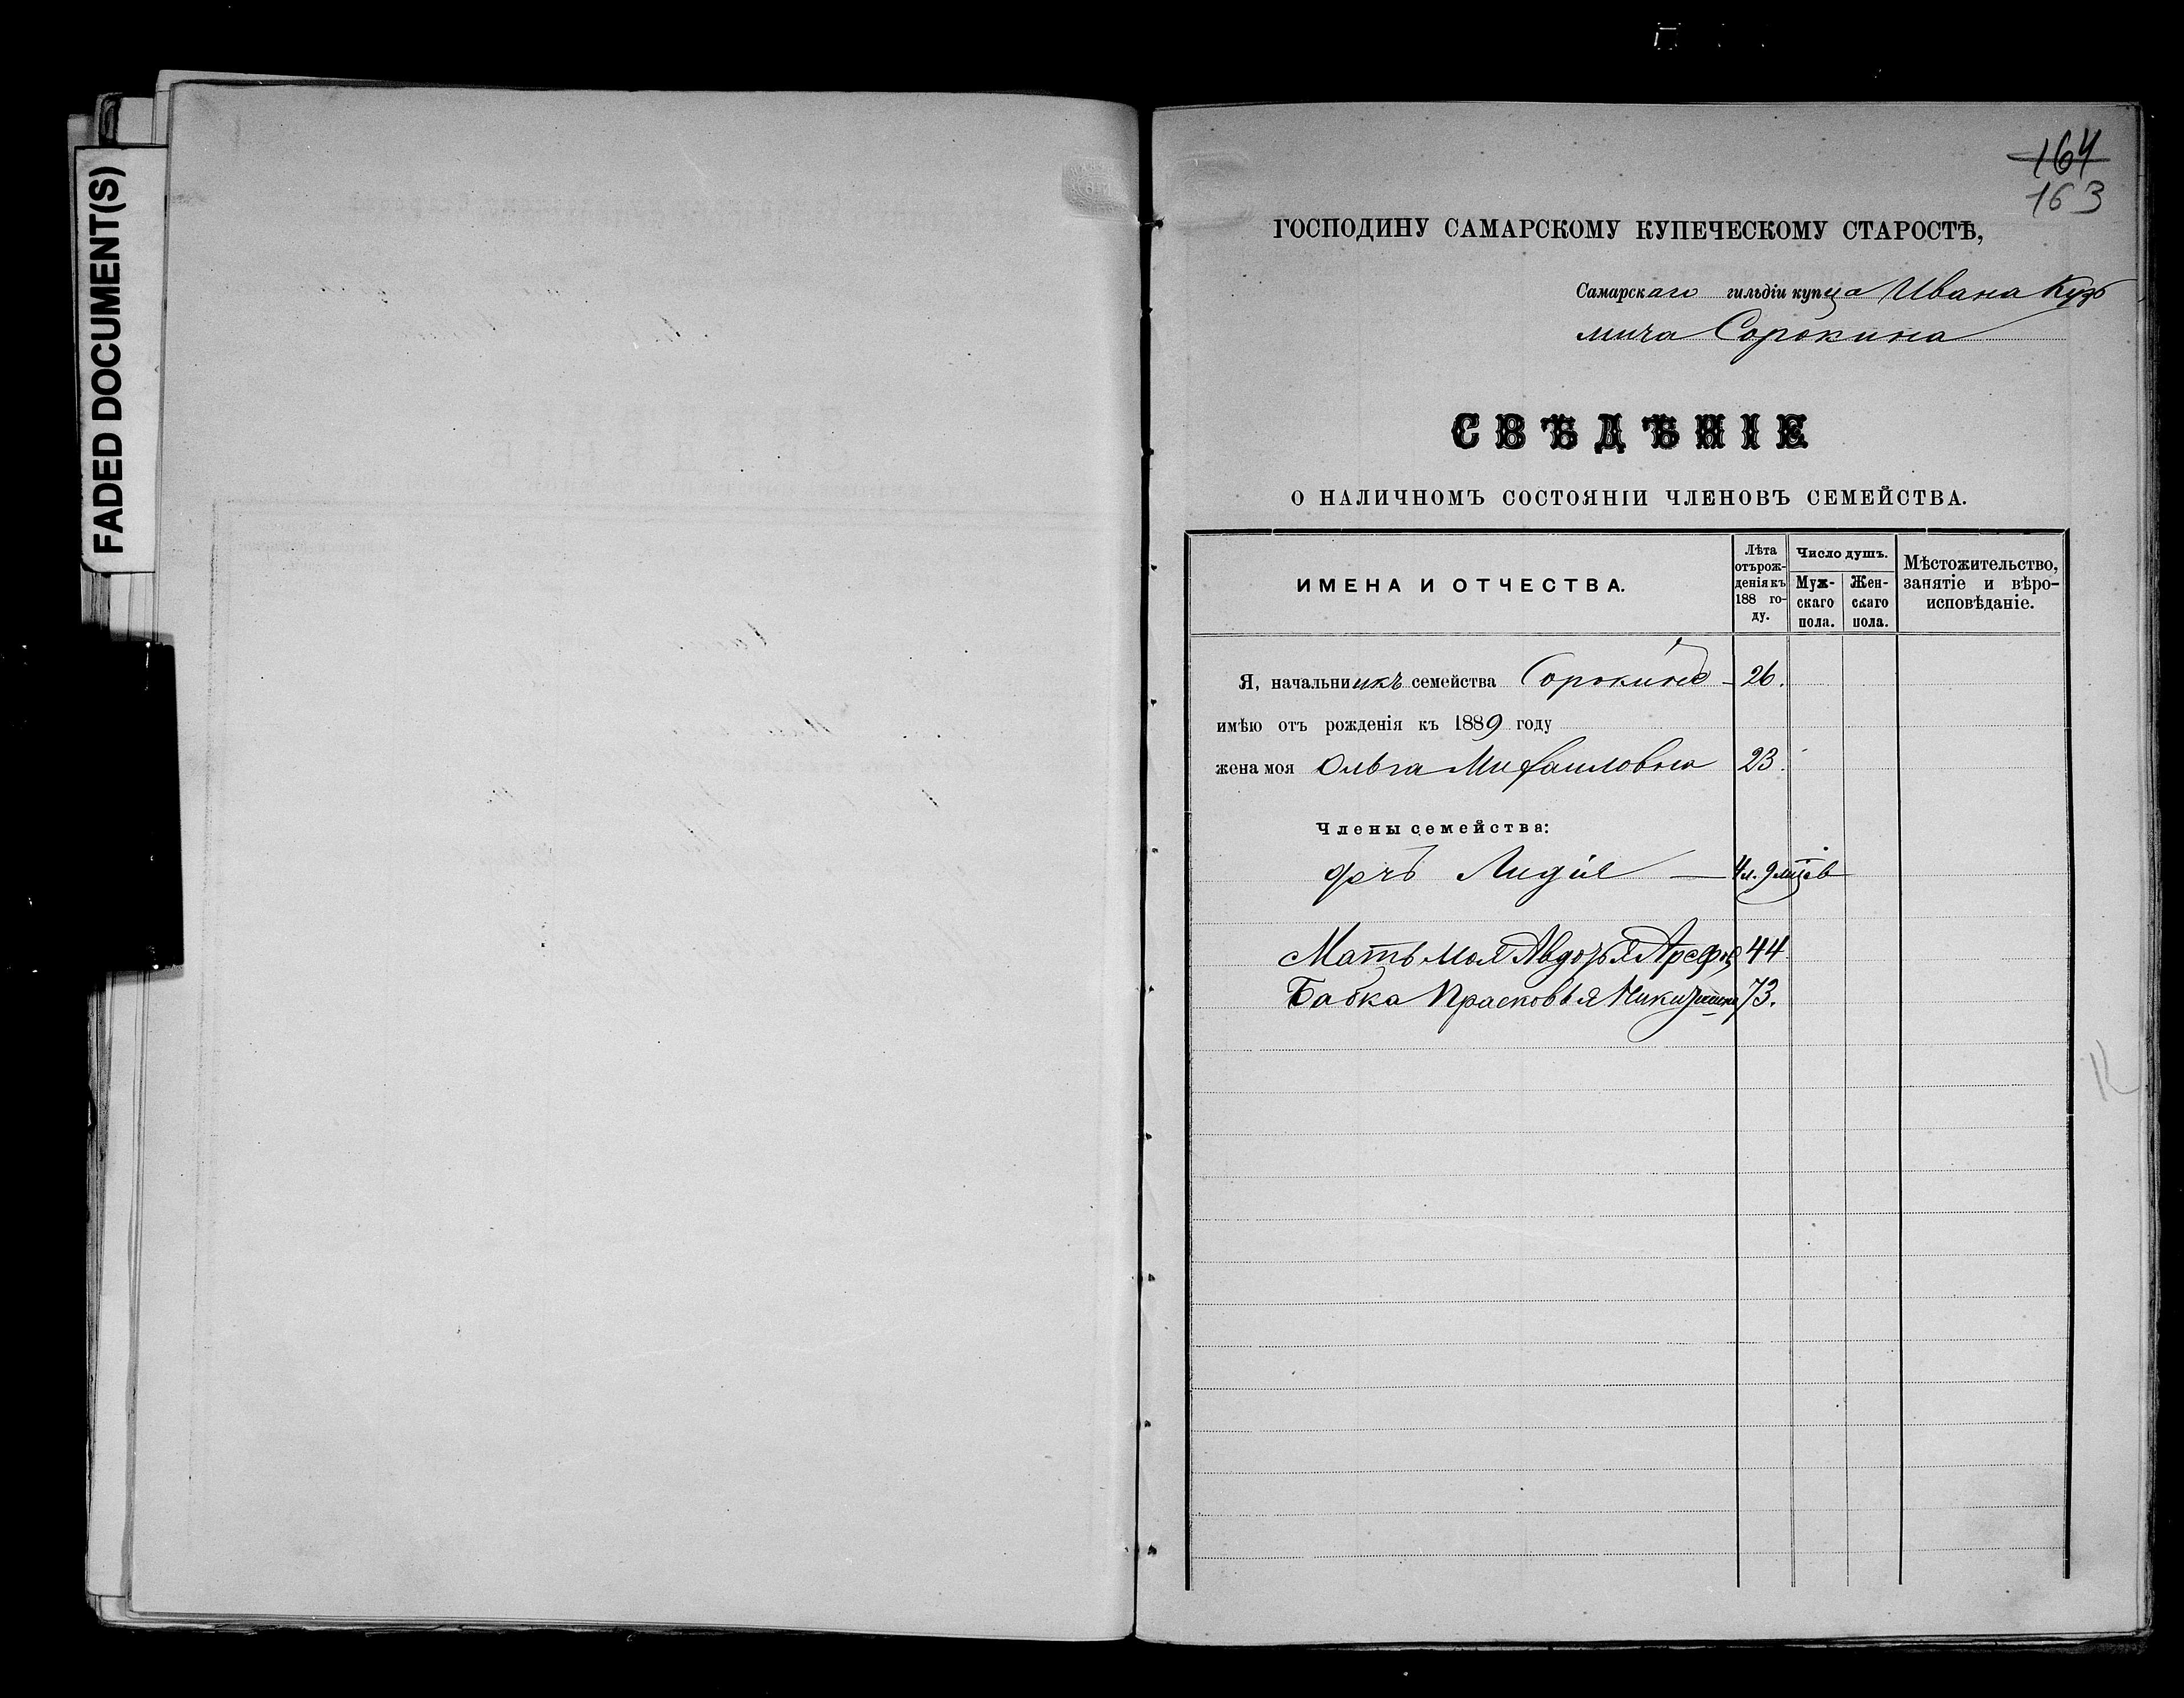 FADED DOCUMENT(S)
164
163
ГОСПОДИНУ САМАРСКОМУ КУПЕЧЕСКОМУ СТАРОСТѢ,
Самарскаго гильдіи купца Ивана Кузь
мича Сорокина
СВѢДѢНІЕ
О НАЛИЧНОМЪ СОСТОЯНІИ ЧЛЕНОВЪ СЕМЕЙСТВА.
ИМЕНА И ОТЧЕСТВА.
Лѣта отърожденія къ 188 году.
Число душъ.
Мужскаго пола.
Женскаго пола.
Мѣстожительство, занятіе и вѣроисповѣданіе.
Я, начальникъ семейства Сорокинъ - 26.
имѣю отъ рожденія къ 1889 году
жена моя Ольга Михаиловна 23.
Члены семейства:
дочь Лидія — 4 л. 9 мцев
Мать моя Авдотья 44
Бабка Прасковья 73.